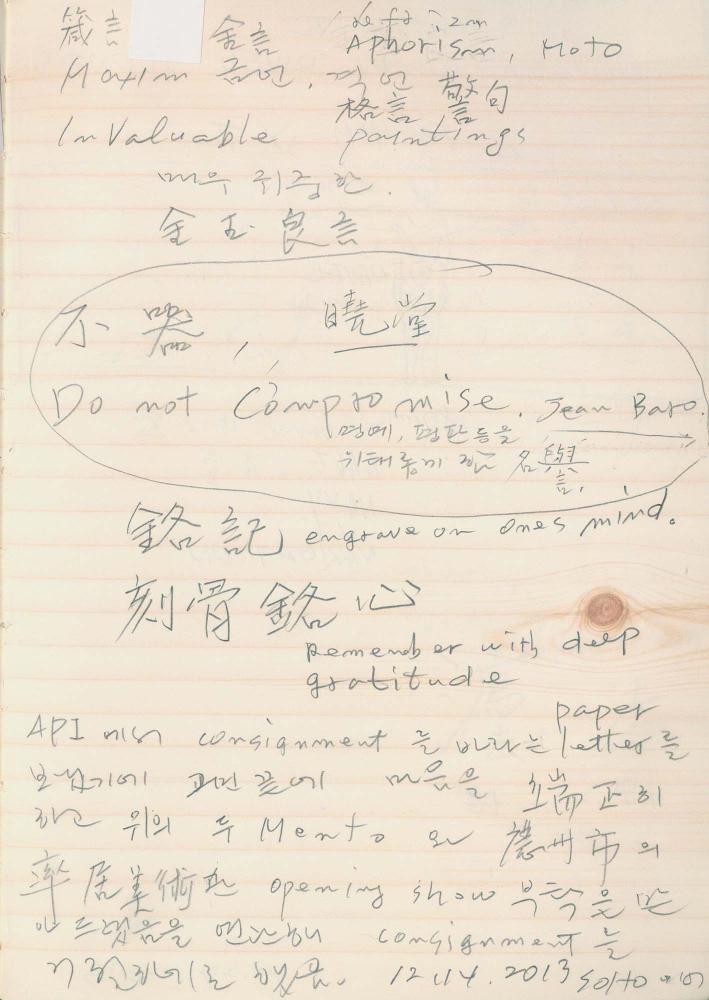 箴言 金言 Aphorism, Moto
Maxim 금언, 격언 警句
格言
InValuable paintings
매우 귀중한.
金玉良言
不器, 曉堂
Do not Compromise. Jean Baro.
명예, 평판 등을
위태롭게 함 名譽
銘記 engrave on ones mind.
刻骨銘心
Remember with deep
gratitude
paper
API에서 consignment 를 바라는 letter를
보냈기에 고민 끝에 마음을 端正히
하고 위의 두 Mento 와 慶州市의
率居美術관 opening show 부탁을 받
consignment 를
12.14.2013 soho에서